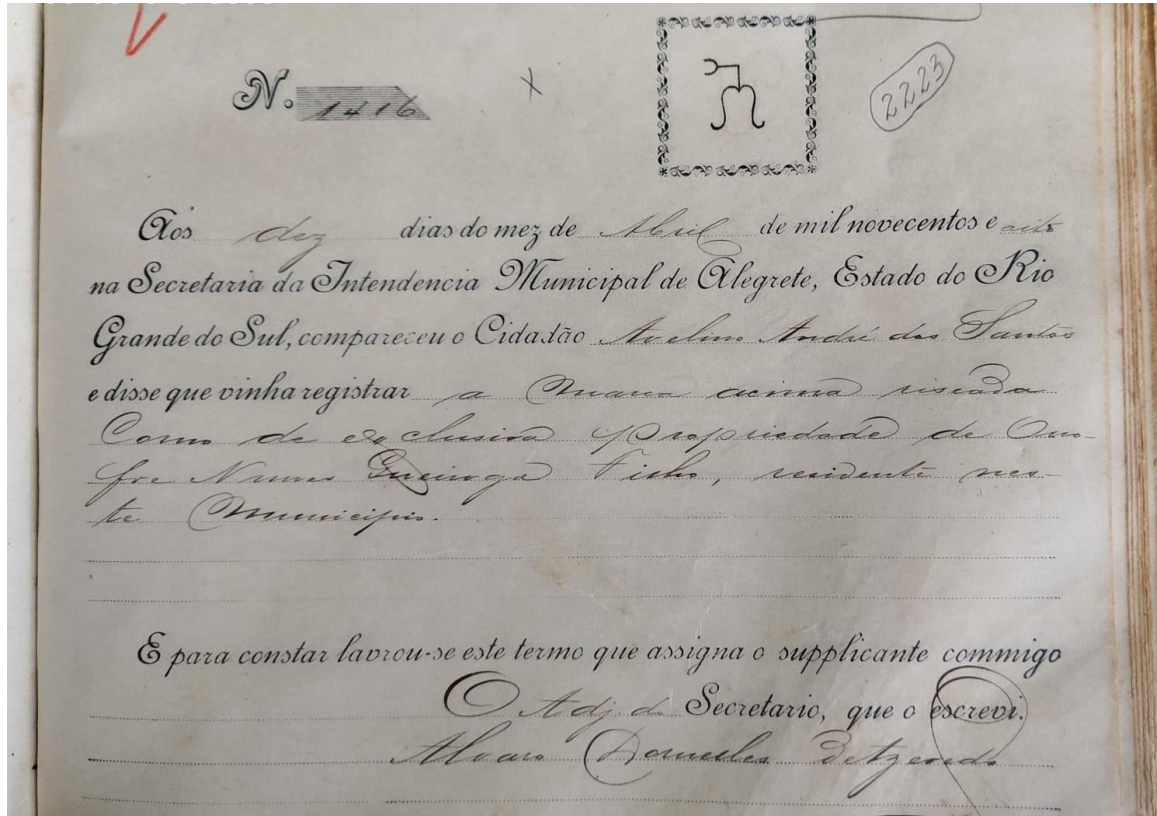 N. 1416
2223
Aos dez dias do mez de Abril de mil novecentos e oito
na Secretaria da Intendencia Municipal de Alegrete, Estado do Rio
Grande do Sul, compareceu o Cidadão Avelino André dos Santos
e disse que vinha registrar a Marca acima riscada
Como de exclusiva propriedade de Ono-
fre Nunes Gueiroga Filho, residente nes-
te Municipio.
E para constar lavrou-se este termo que assigna o supplicante commigo
O Adj. do Secretario, que o escrevi.
Alvaro Dornelles